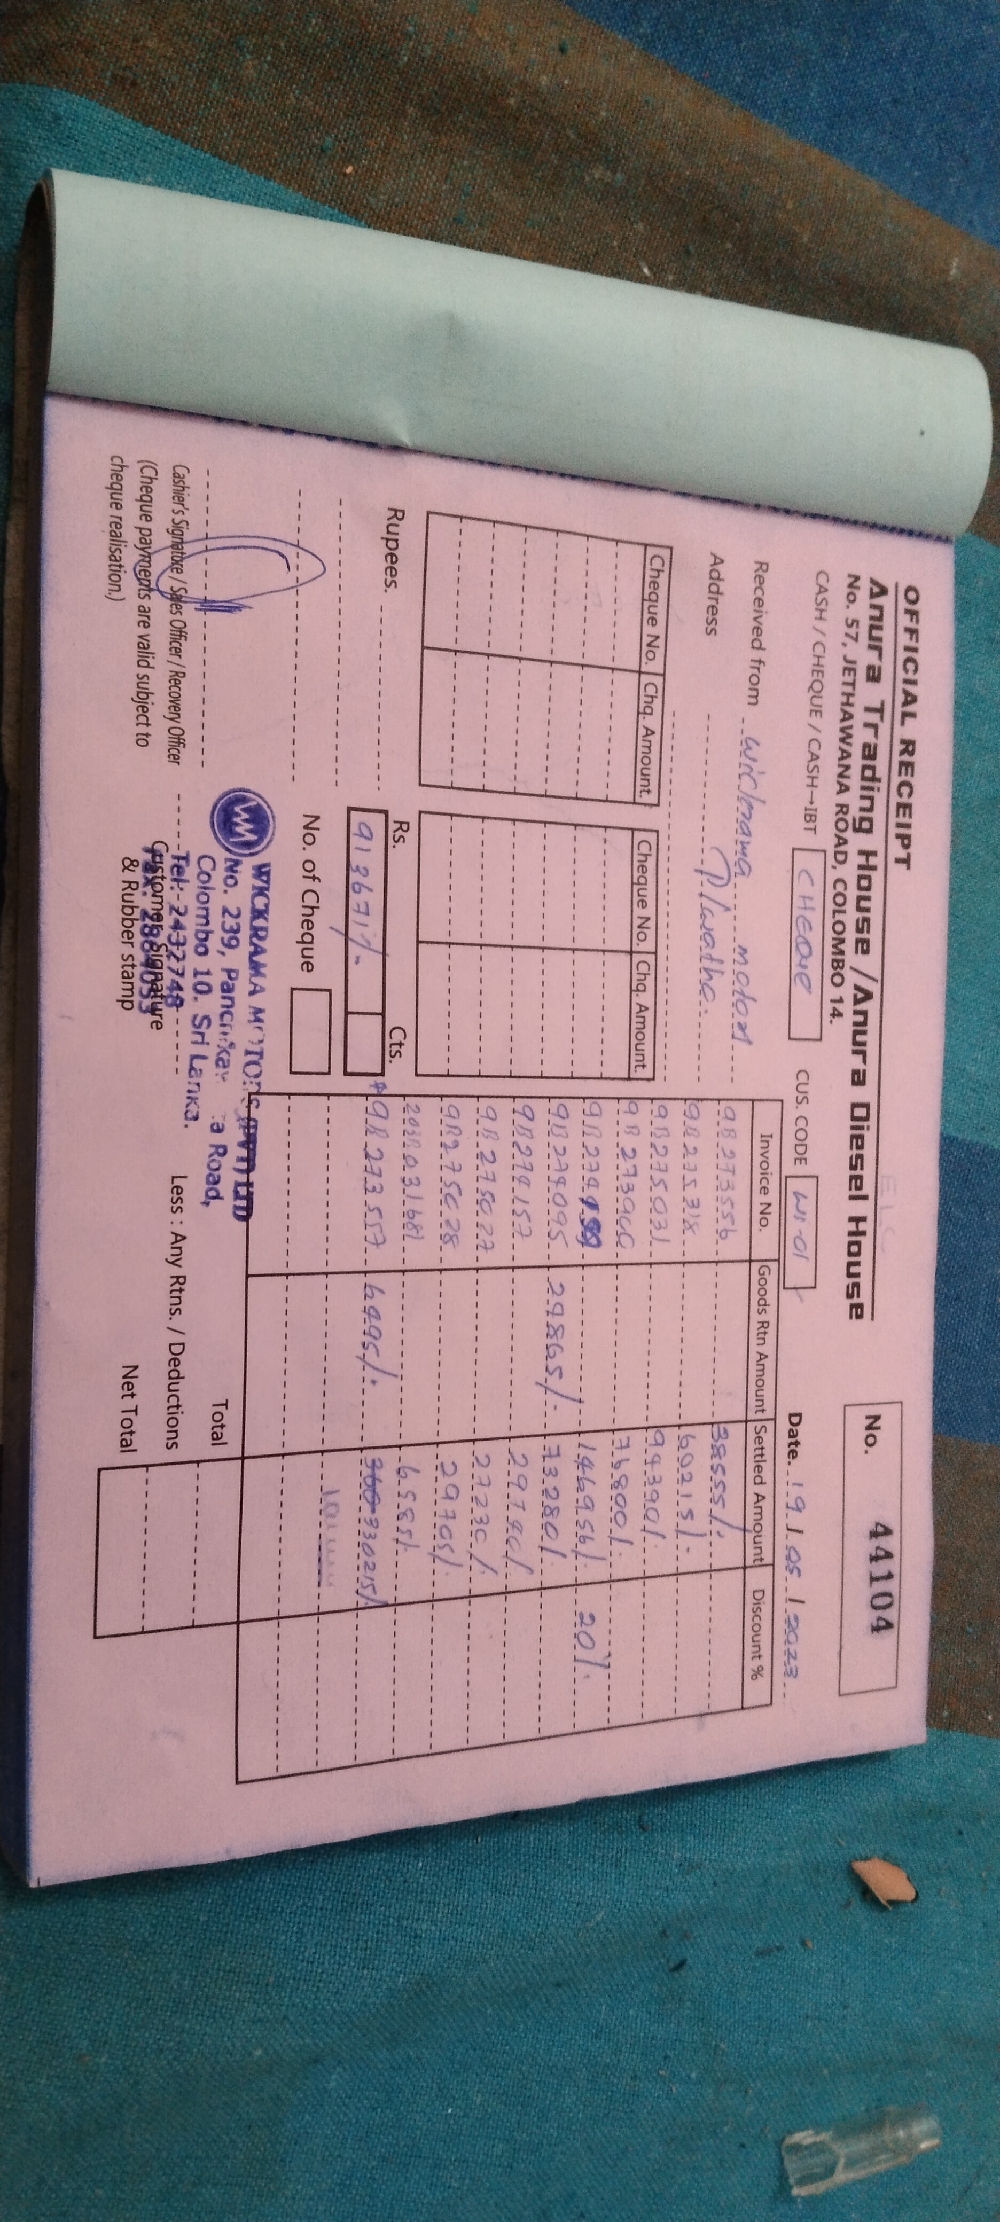 OFFICIAL RECEIPT
Anura Trading House / Anura Diesel House
No. 57, JETHAWANA ROAD, COLOMBO 14.
No. 44104
CASH / CHEQUE / CASH→IBT CHEQUE CUS. CODE WI-01 Date. 19/05/2023
Received from Wickrama motors
Address
Cheque No. Chq. Amount Cheque No. Chq. Amount
Invoice No. Goods Rtn Amount Settled Amount Discount %
9B273556 38555/-
9B275318 60215/-
9B275031 99390/-
9B273900 76800/-
146956/- 20%
9B279095 29865/- 73280/-
9B279157 29740/-
9B275027 27230/-
9B275028 29705/-
6585/-
9B273557 6495/- 330215/-
Rupees.
Rs. Cts.
913671/-
No. of Cheque
WICKRAMA MOTORS (PVT) LTD
WM
No. 239, Road,
Colombo 10. Sri Lanka.
Tel: 2432748
Fax:
Cashier's Signature / Sales Officer / Recovery Officer
(Cheque payments are valid subject to
cheque realisation.)
Customer Signature
& Rubber stamp
Total
Less : Any Rtns. / Deductions
Net Total